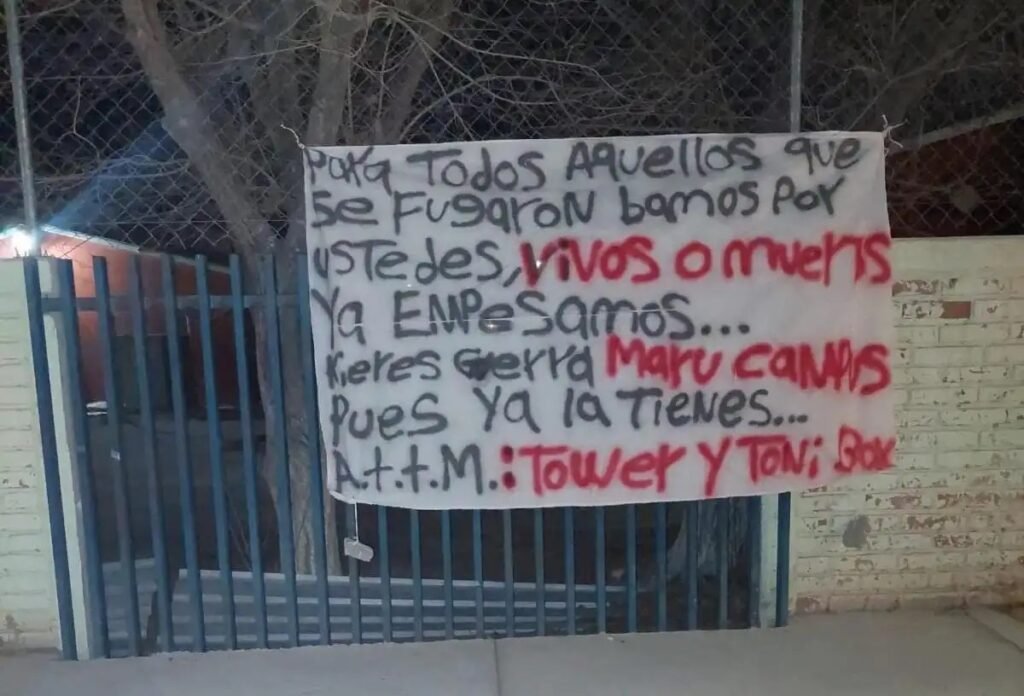 PaRa Todos Aquellos que
se FugaroN bamos Por
usTedes, vivos o muerTs
Ya EMPesamos...
Kieres Gerra Maru CAMPUS
Pues Ya la TieNes...
A.t.t.M.: Tower Y ToNi Box